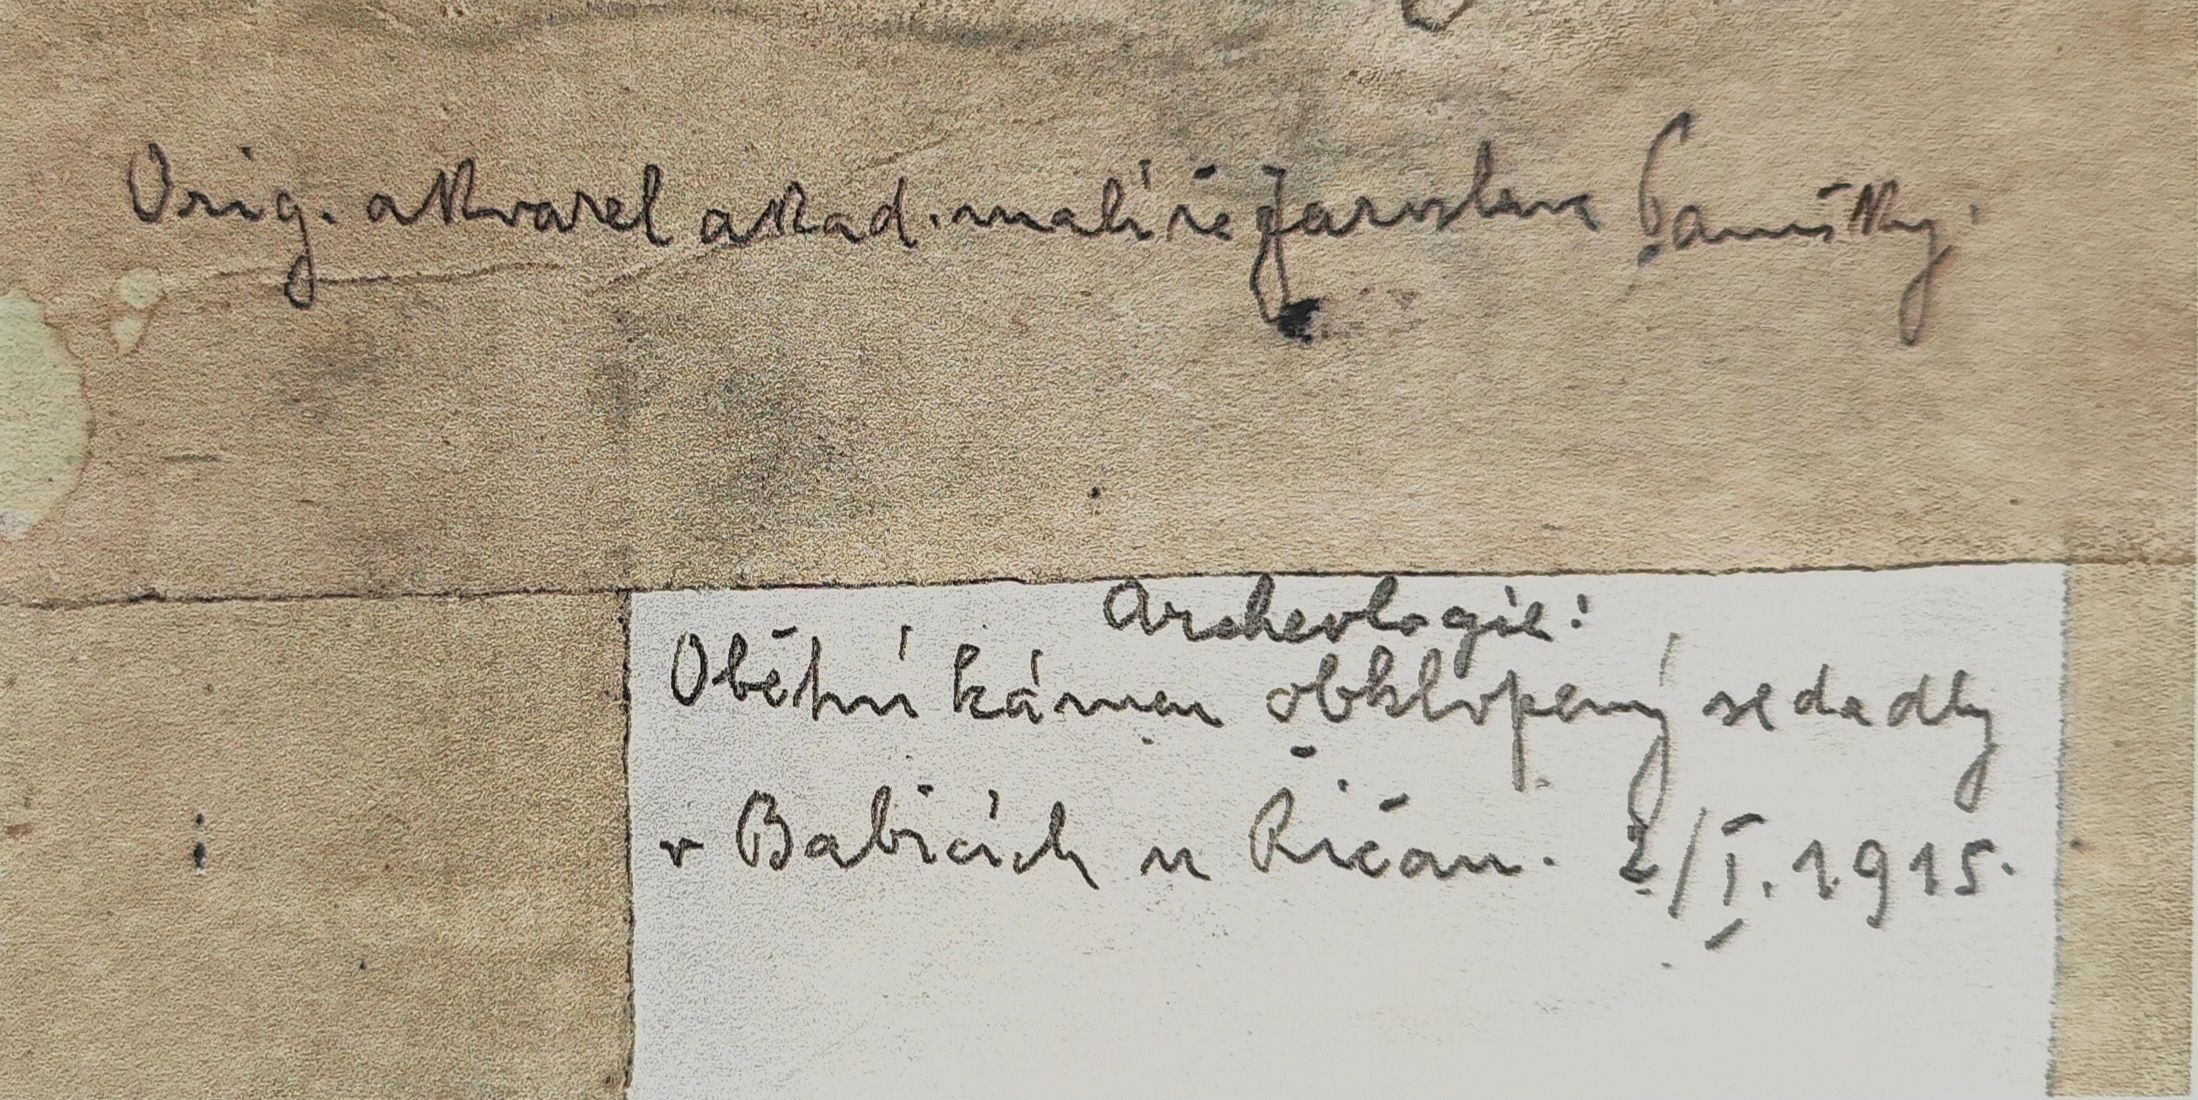 Orig. akvarel akad. malíře Jaroslava Panušky.
Archeologie:
Obětní kámen obklopený sedadly
v Babicích u Říčan. 2/I. 1915.